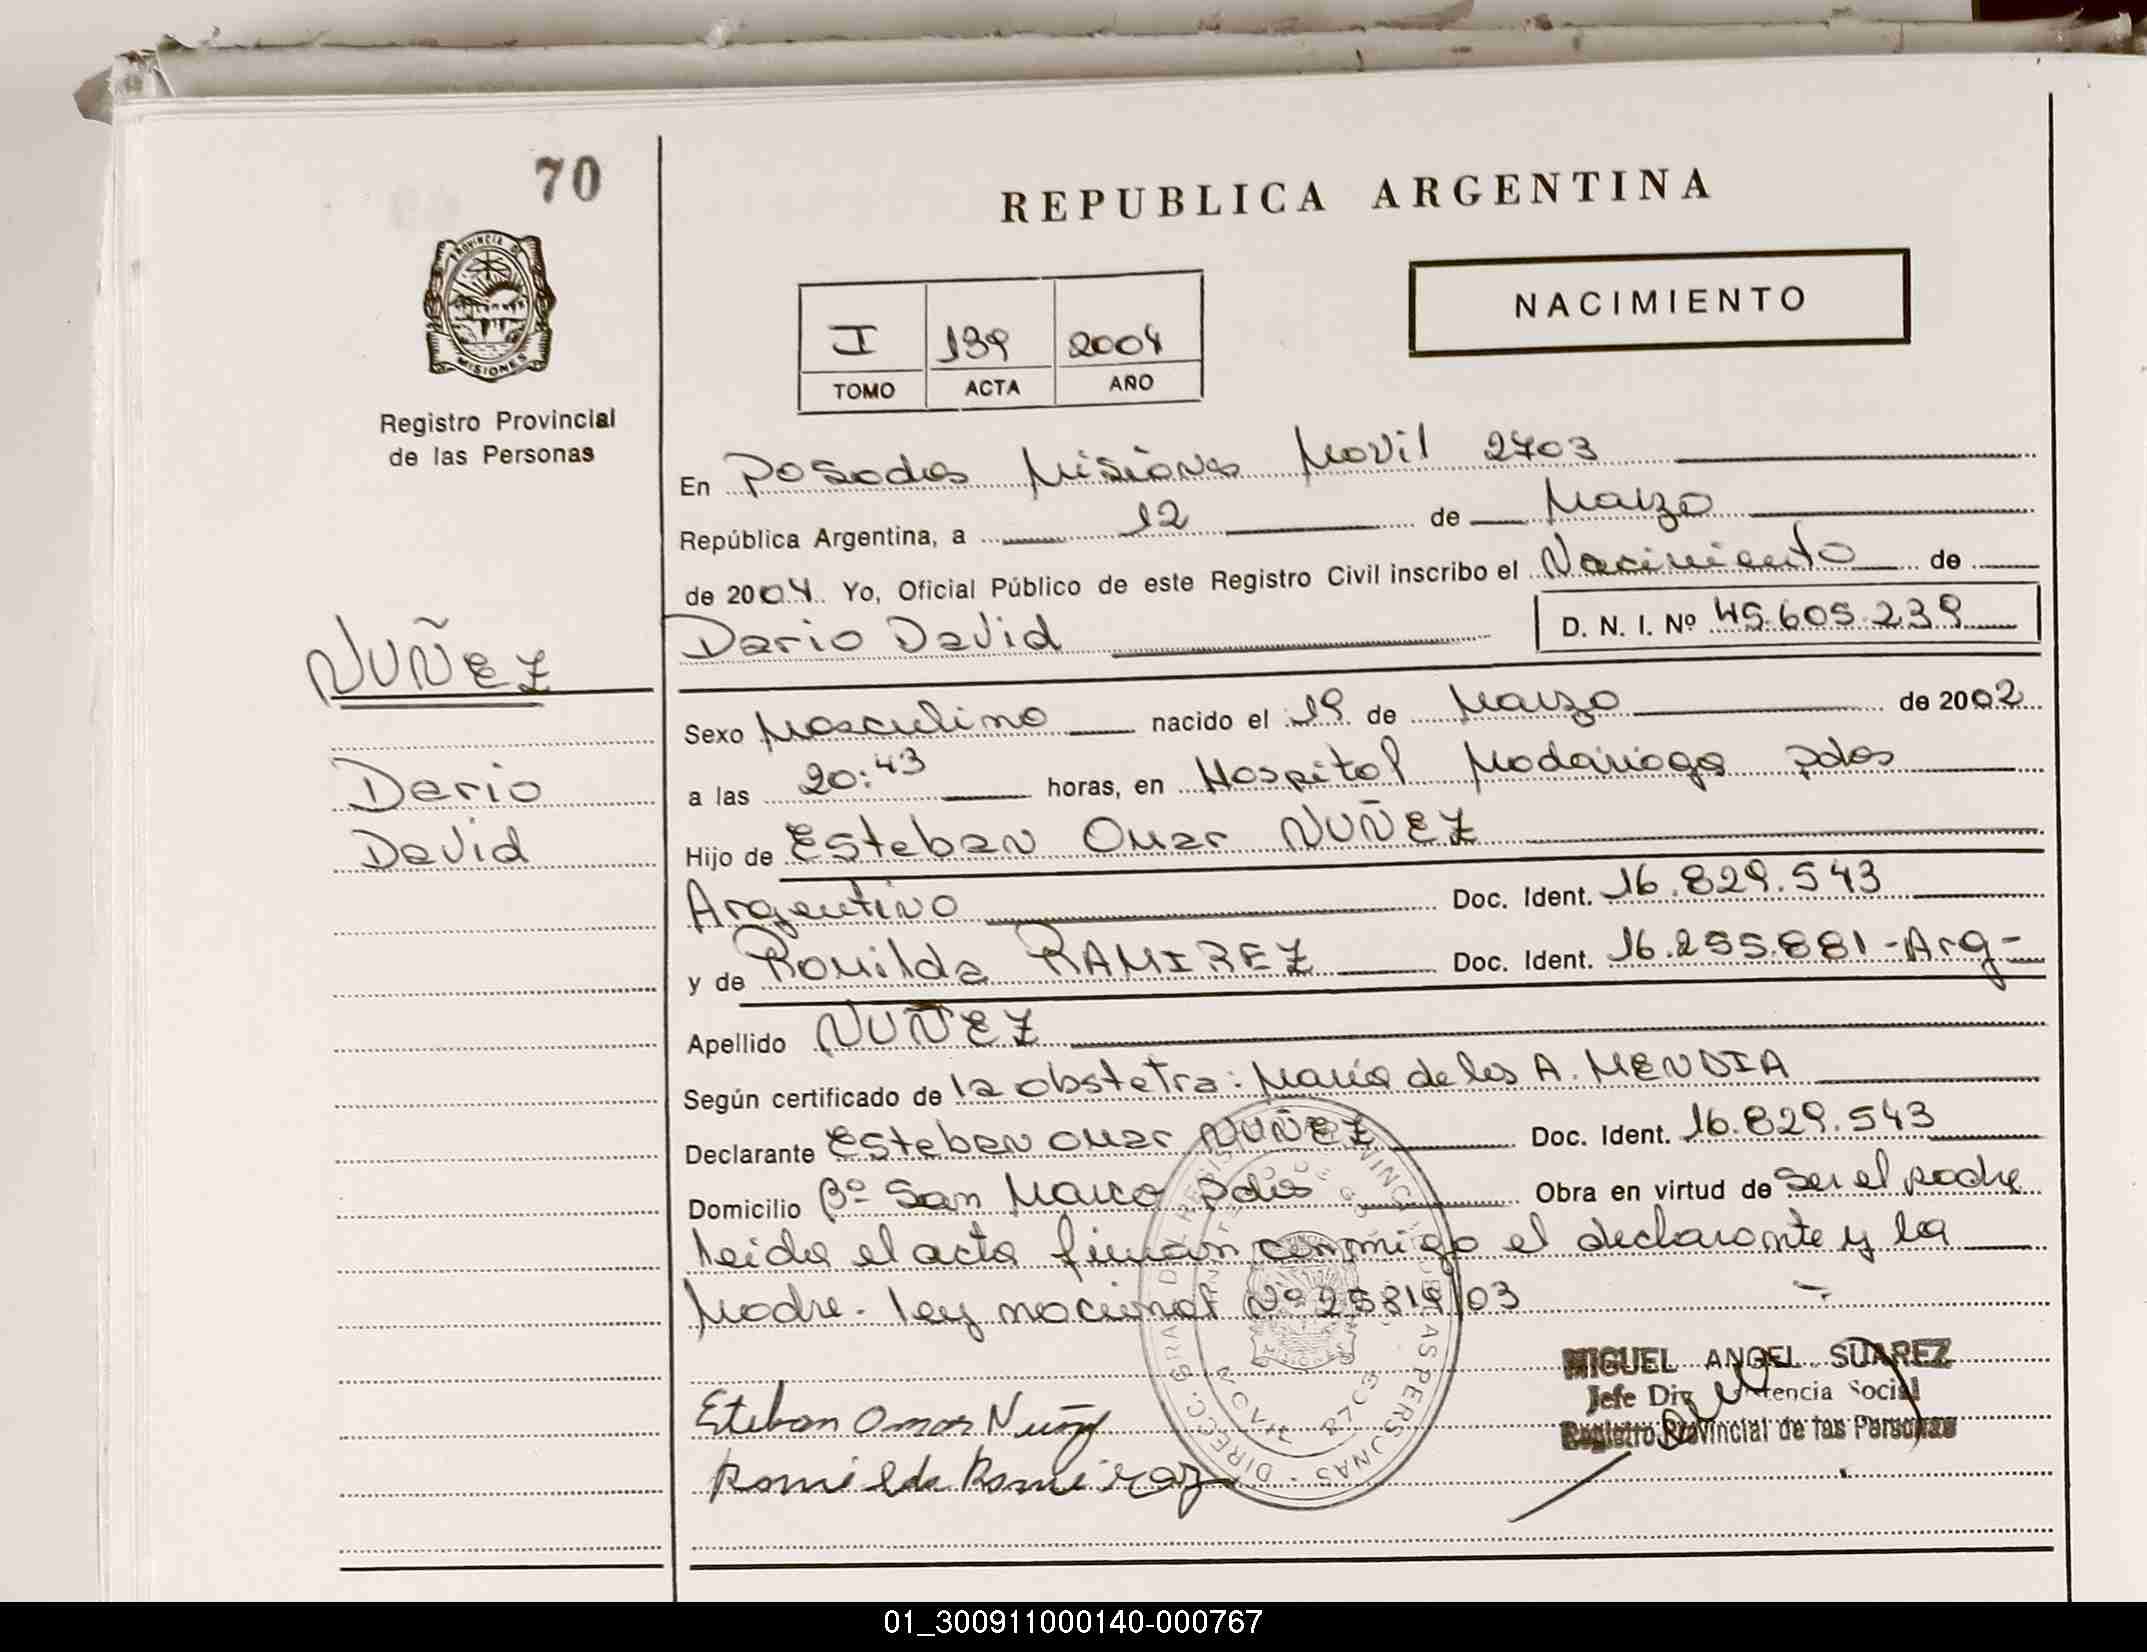 70
REPUBLICA ARGENTINA
PROVINCIA DE
MISIONES
Registro Provincial
de las Personas
NACIMIENTO
I 139 2004
TOMO ACTA AÑO
En Posadas Misiones Movil 2703
República Argentina, a 12 de Marzo
de 2004. Yo, Oficial Público de este Registro Civil inscribo el Nacimiento de
Dario David D. N. I. Nº 45.605.239
NUÑEZ
Dario
David
Sexo Masculino nacido el 19 de Marzo de 2002
a las 20:43 horas, en Hospital Madariaga Pdas
Hijo de Esteban Omar NUÑEZ
Argentino Doc. Ident. 16.829.543
y de Romilda RAMIREZ Doc. Ident. 16.255.881-Arg-
Apellido NUÑEZ
Según certificado de la obstetra: María de los A. MENDIA
Declarante Esteban Omar NUÑEZ Doc. Ident. 16.829.543
Domicilio Bº San Marco Pdas Obra en virtud de ser el padre
Leida el acta firman conmigo el declarante y la
Madre. Ley nacional Nº 25819/03
MIGUEL ANGEL SUAREZ
Jefe Social
Registro Provincial de las Personas
Esteban Omar Nuñez
Romilda Ramirez
01_300911000140-000767